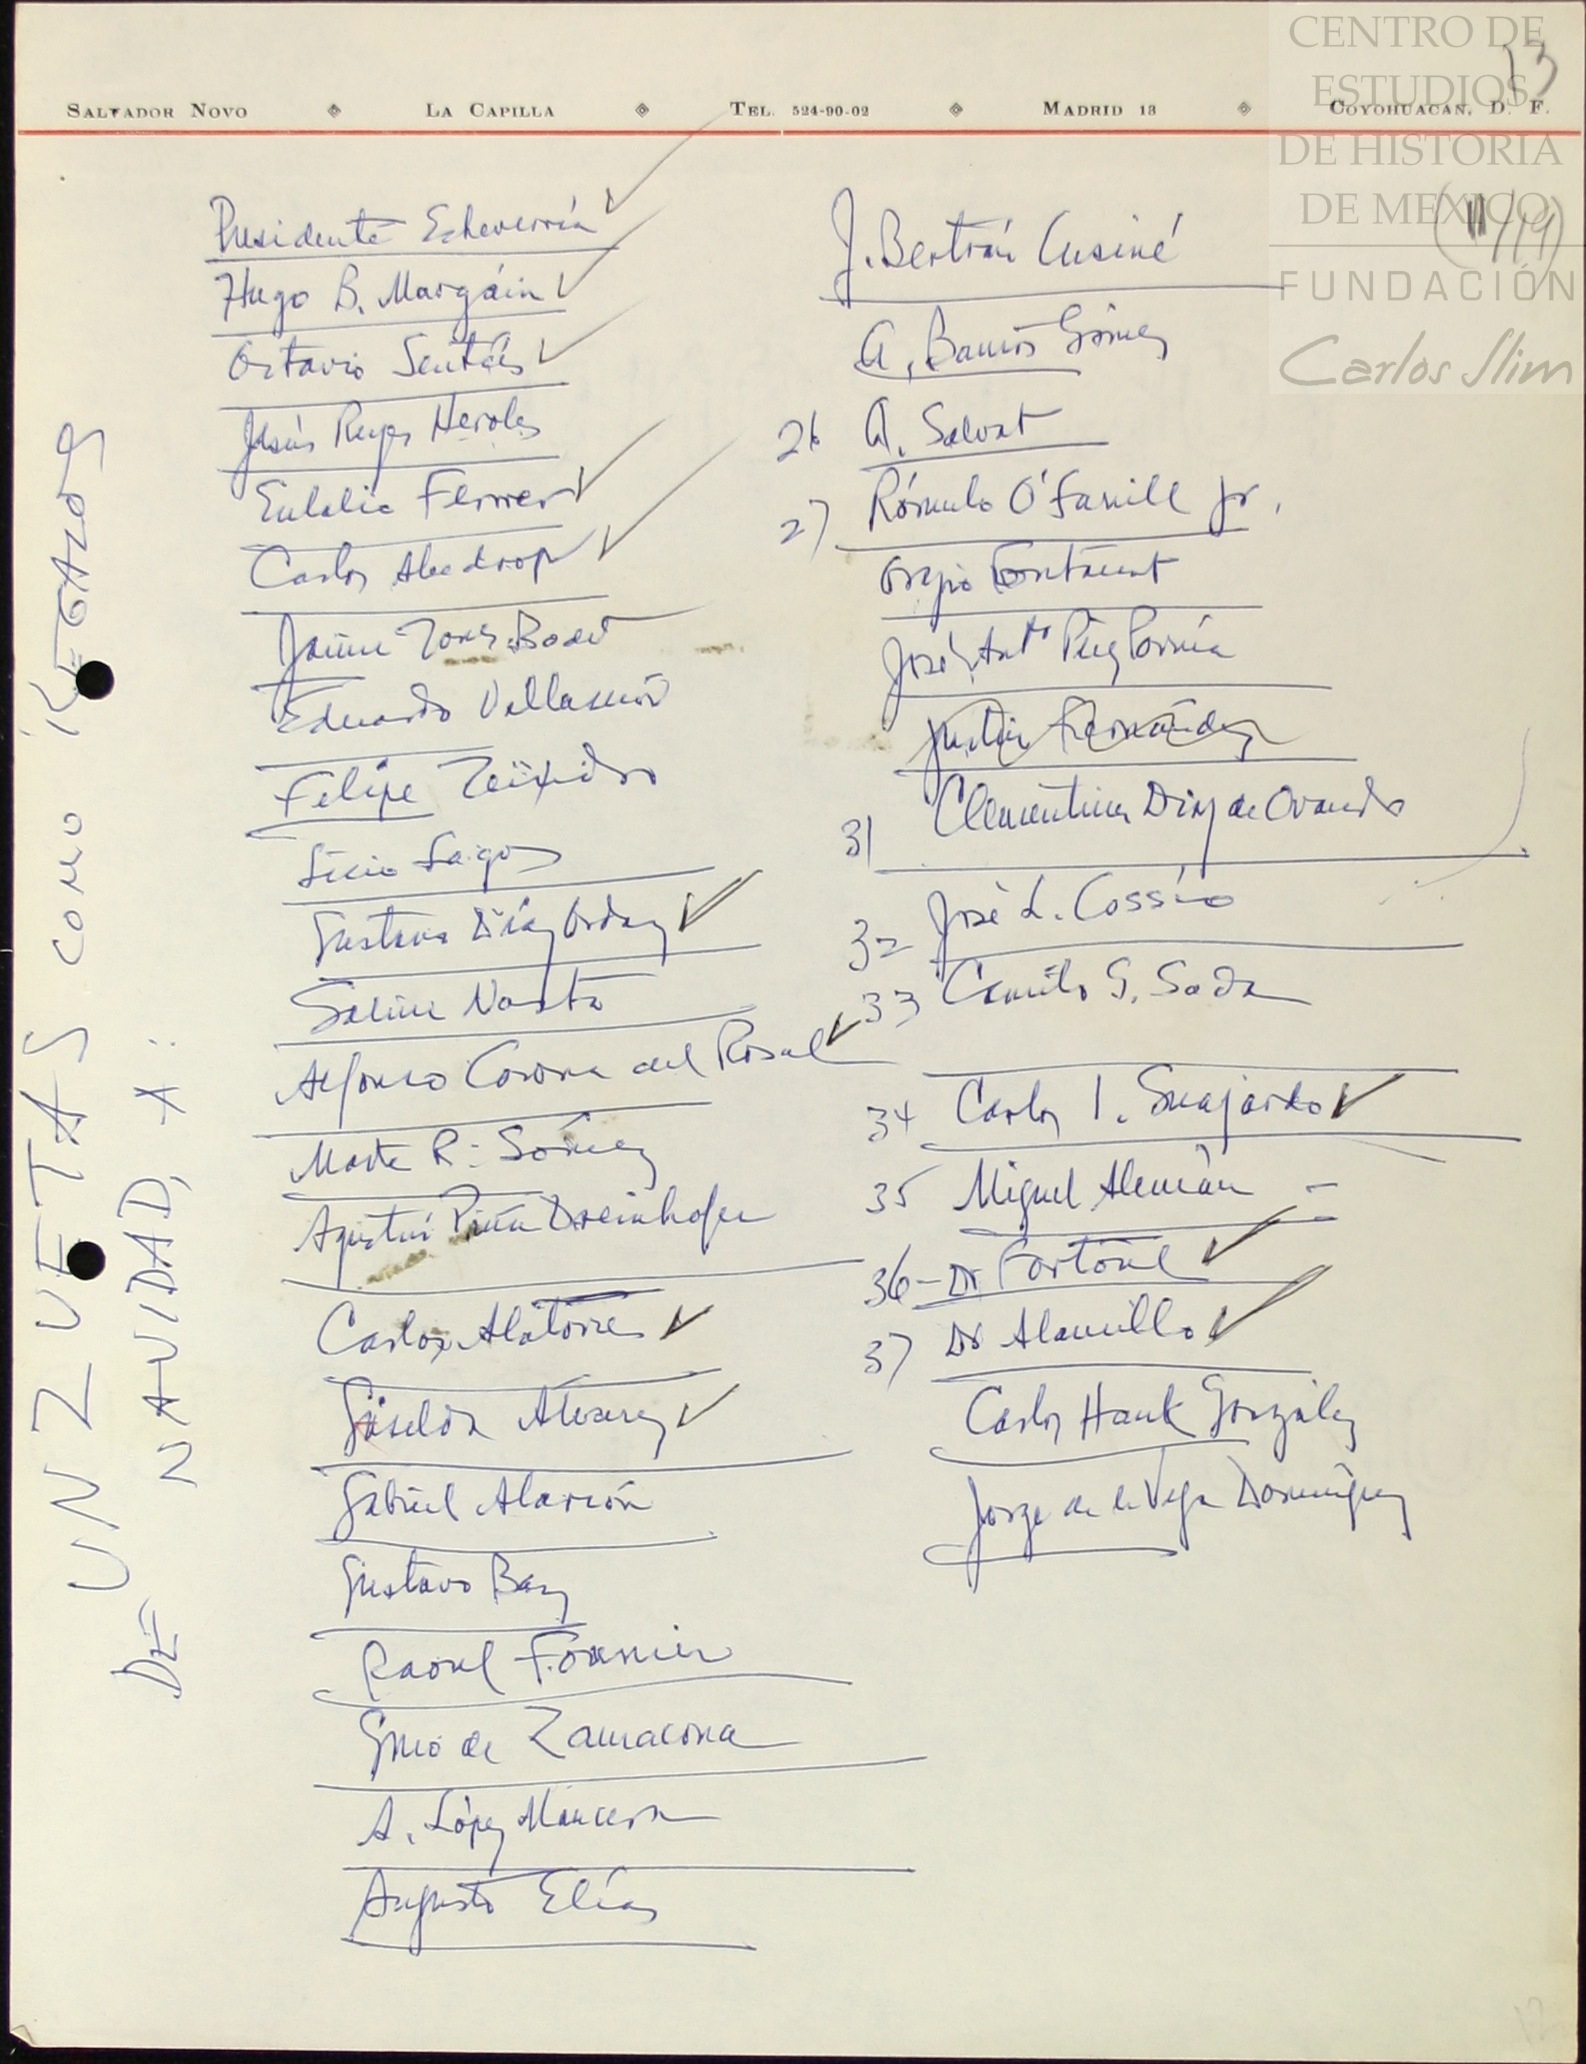 SALVADOR NOVO LA CAPILLA TEL. 524-90-02 MADRID 13 COYOHUACAN, D. F.
13
CENTRO DE
ESTUDIOS
DE HISTORIA
DE MEXICO
FUNDACIÓN
Carlos Slim
UNZUETAS COMO REGALOS
DE NAVIDAD, A:
Presidente Echeverría
Hugo B. Margáin
Octavio Sentíes
Jesús Reyes Heroles
Eulalio Ferrer
Carlos Abedrop
Jaime Torres Bodet
Eduardo Villaseñor
Felipe Teixidor
Licio Lagos
Gustavo Díaz Ordaz
Salim Nasta
Alfonso Corona del Rosal
Marte R. Gómez
Agustín Piña Dreinhofer
Carlos Alatorre
Griselda Alvarez
Gabriel Alarcón
Gustavo Baz
Raoul Fournier
Gmo de Zamacona
A. López Mancera
Augusto Elías
J. Bertrán Cusiné
A. Barrios Gómez
26 A. Salvat
27 Rómulo O'Farrill Jr.
José Antº Pérez Porrúa
Justino Fernández
31 Clementina Díaz de Ovando
32 José L. Cossío
33 Camilo G. Sada
34 Carlos I. Guajardo
35 Miguel Alemán
36- Dr Fortoul
37 Dr Alamillo
Carlos Hank González
Jorge de la Vega Domínguez